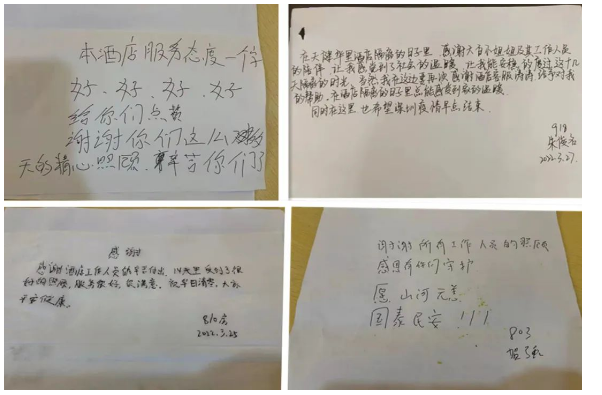 本酒店服务态度一字
好、好、好、好
给你们点赞
谢谢你们这么
天的精心照顾,辛苦你们了
在天 里酒店隔离的日子里,感谢大白小姐姐及其工作人员
的陪伴,让我感受到了社会的温暖,让我能安稳的度过这十几
天隔离的时光,当然我在这边要再次感谢酒店客服 给予对我
的帮助,在酒店隔离的日子里总能感受到家的温暖。
同时在这里也希望深圳疫情早点结束。
918
朱俊
2022.3.27.
感谢
感谢酒店工作人员的辛苦付出,14天里受到了很
好的照顾,服务很好,很满意, 早日清零,大家
平安健康。
810房
2022.3.25
谢谢所有工作人员的照顾
感恩有你们守护
愿山河无恙
国泰民安!!!
803